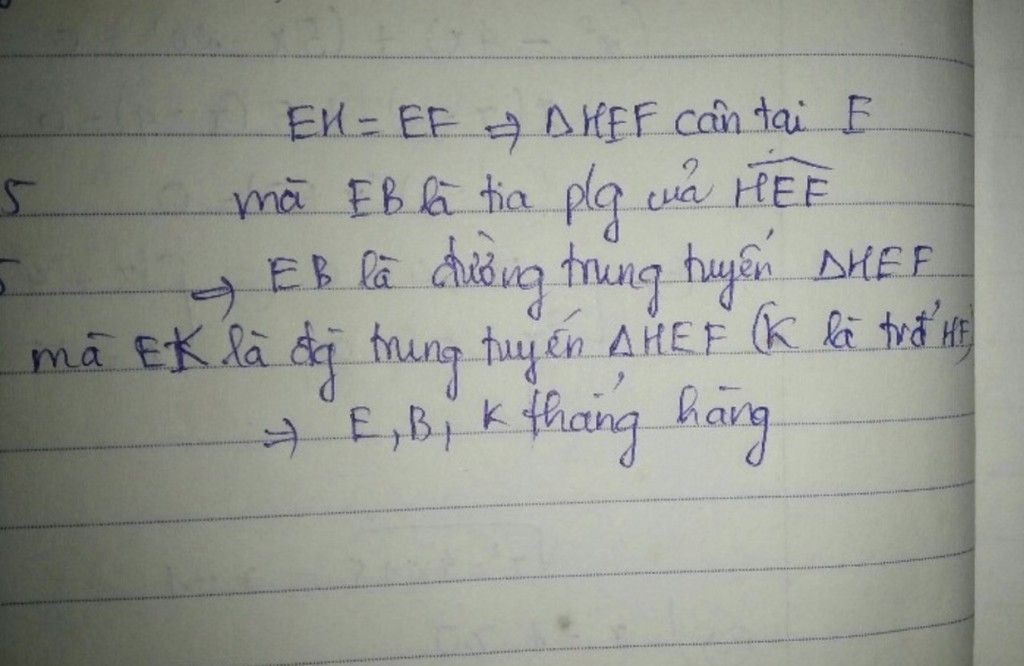 EH = EF ⇒ ΔHEF cân tại E
5 mà EB là tia p/g của HEF
⇒ EB là đường trung tuyến ΔHEF
mà EK là đg trung tuyến ΔHEF (K là trđ HF)
⇒ E, B, K thẳng hàng